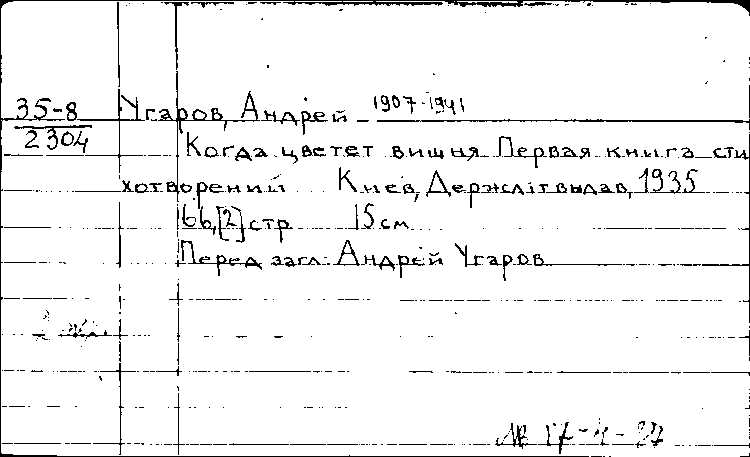 35-8 Угаров, Андрей 1907-1941
2304 Когда цветет вишня Первая книга сти
хотворений Киев, Держлітвидав, 1935
66, [2] стр 15 см
Перед загл: Андрей Угаров